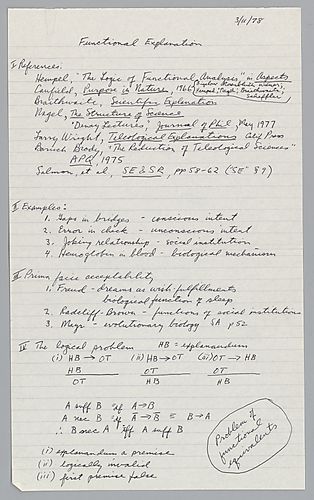 3/11/78
Functional Explanation
I References:
Hempel, "The Logic of Functional Analysis" in Aspects
Canfield, Purpose in Nature, 1966
Hempel, Nagel, Braithwaite,
Scheffler
Braithwaite, Scientific Explanation
Nagel, The Structure of Science
"Dewey Lectures", Journal of Phil, May 1977
Larry Wright, Teleological Explanations Calif Press
Baruch Brody, "The Reduction of Teleological Sciences"
APQ, 1975
Salmon, et al, SE & SR, pp 58-62 (SE
II Examples:
1. Gaps in bridges - conscious intent
2. Error in check - unconscious intent
3. Joking relationship - social institution
4. Hemoglobin in blood - biological mechanism
III Prima facie acceptability
1. Freud - dreams as wish-fulfillments
biological function of sleep
2. Radcliff-Brown - functions of social institutions
3. Mayr - evolutionary biology SA p52
IV The logical problem HB = explanandum
(i) HB → OT (ii) HB → OT (iii) OT → HB
HB OT OT
OT HB HB
A suff B if A → B
A nec B if A̅ → B̅ ≡ B → A
∴ B nec A iff A suff B
(i) explanandum a premise
(ii) logically invalid
(iii) first premise false
Problem of
functional
equivalents